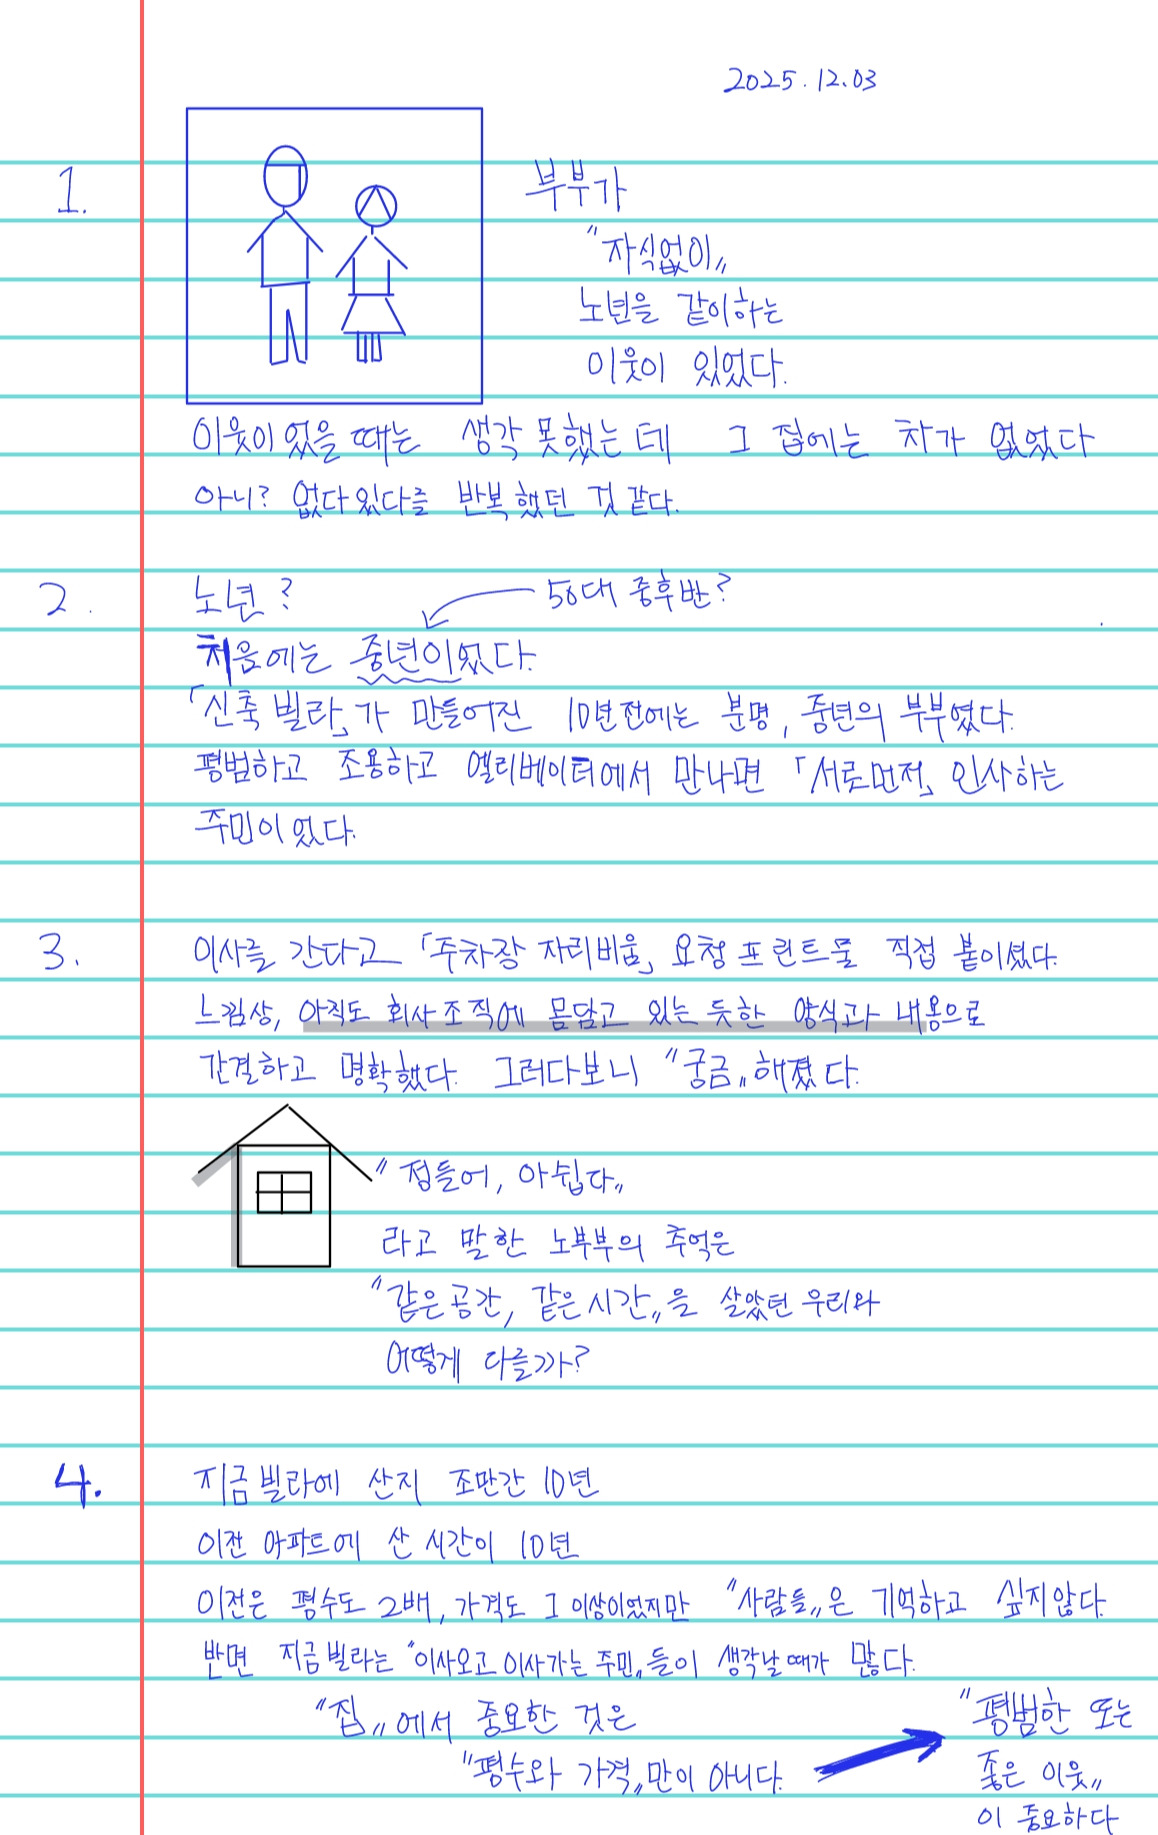 2025.12.03
1.
부부가
"자식없이"
노년을 같이하는
이웃이 있었다.
이웃이 있을 때는 생각 못했는데 그 집에는 차가 없었다
아니? 없다있다를 반복했던 것 같다.
2.
노년? 50대 중후반?
처음에는 중년이었다.
「신축 빌라」가 만들어진 10년전에는 분명, 중년의 부부였다.
평범하고 조용하고 엘리베이터에서 만나면 「서로먼저」 인사하는
주민이었다.
3.
이사를 간다고 「주차장 자리비움」 요청 프린트물 직접 붙이셨다.
느낌상, 아직도 회사 조직에 몸담고 있는 듯한 양식과 내용으로
간결하고 명확했다. 그러다보니 "궁금"해졌다.
"정들어, 아쉽다"
라고 말한 노부부의 추억은
"같은 공간, 같은 시간"을 살았던 우리와
어떻게 다를까?
4.
지금 빌라에 산지 조만간 10년
이전 아파트에 산 시간이 10년
이전은 평수도 2배, 가격도 그 이상이었지만 "사람들"은 기억하고 싶지않다.
반면 지금 빌라는 "이사오고 이사가는 주민"들이 생각날 때가 많다.
"집"에서 중요한 것은
"평수와 가격"만이 아니다.
"평범한 또는
좋은 이웃"
이 중요하다